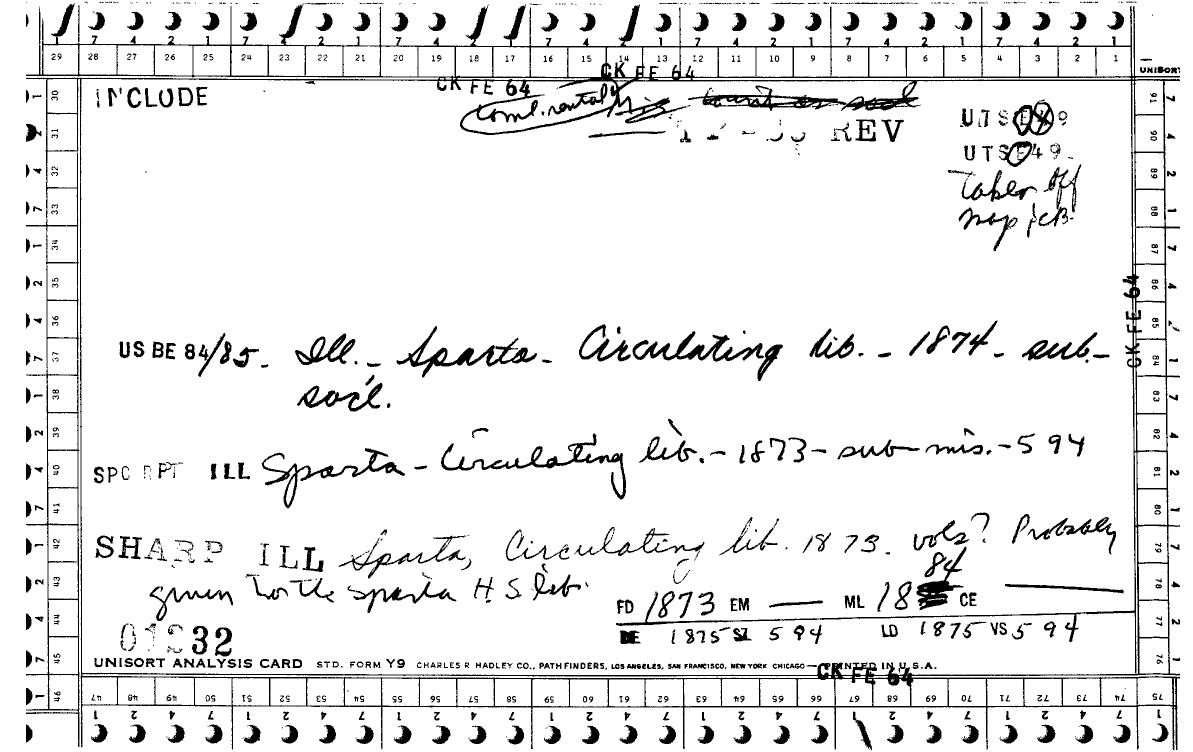 7 4 2 1 7 4 2 1 7 4 2 1 7 4 2 1 7 4 2 1 7 4 2 1 7 4 2 1
29 28 27 26 25 24 23 22 21 20 19 18 17 16 15 14 13 12 11 10 9 8 7 6 5 4 3 2 1
UNISORT
CK FE 64
CK FE 64
INCLUDE
Coml. rental
REV
UTSE49
UTSE49
Taken off
map
CK FE 64
US BE 84/85 - Ill. - Sparta - Circulating lib. - 1874 - sub. -
soc'l.
SPC RPT ILL Sparta - Circulating lib. - 1873 - sub - mis. - 594
SHARP ILL Sparta, Circulating lib. 1873. vols? Probably
given to the Sparta H.S. lib.
84
FD 1873 EM — ML 18 CE —
DE 1875 SZ 594 LD 1875 VS 594
32
UNISORT ANALYSIS CARD STD. FORM Y9 CHARLES R HADLEY CO., PATHFINDERS, LOS ANGELES, SAN FRANCISCO, NEW YORK CHICAGO — PRINTED IN U.S.A.
CK FE 64
47 48 49 50 51 52 53 54 55 56 57 58 59 60 61 62 63 64 65 66 67 68 69 70 71 72 73 74 75
1 2 4 7 1 2 4 7 1 2 4 7 1 2 4 7 1 2 4 7 1 2 4 7 1 2 4 7 1